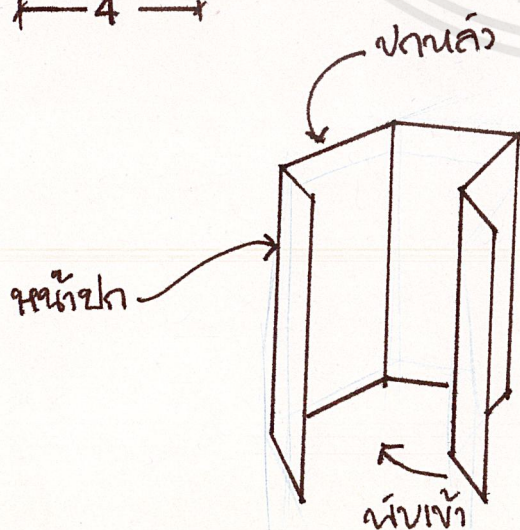 4
ปกหลัง
หน้าปก
พับเข้า